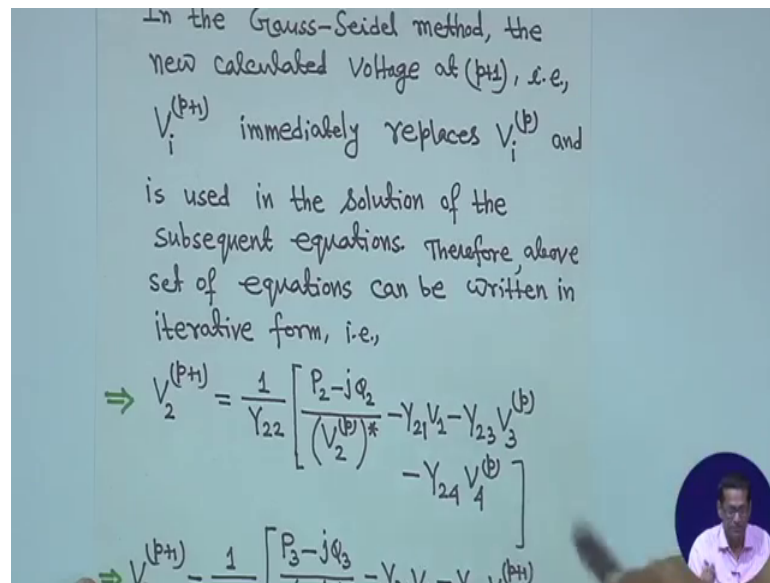 In the Gauss-Seidel method, the
new calculated voltage at (p+1), i.e,
V_i^(p+1) immediately replaces V_i^(p) and
is used in the solution of the
subsequent equations. Therefore, above
set of equations can be written in
iterative form, i.e.,
⇒ V_2^(p+1) = 1/Y_22 [ (P_2-jQ_2)/(V_2^(p))^* -Y_21 V_1 - Y_23 V_3^(p)
- Y_24 V_4^(p) ]
⇒ V^(p+1) = 1 [ P_3-jQ_3 - Y V - Y V^(p+1)